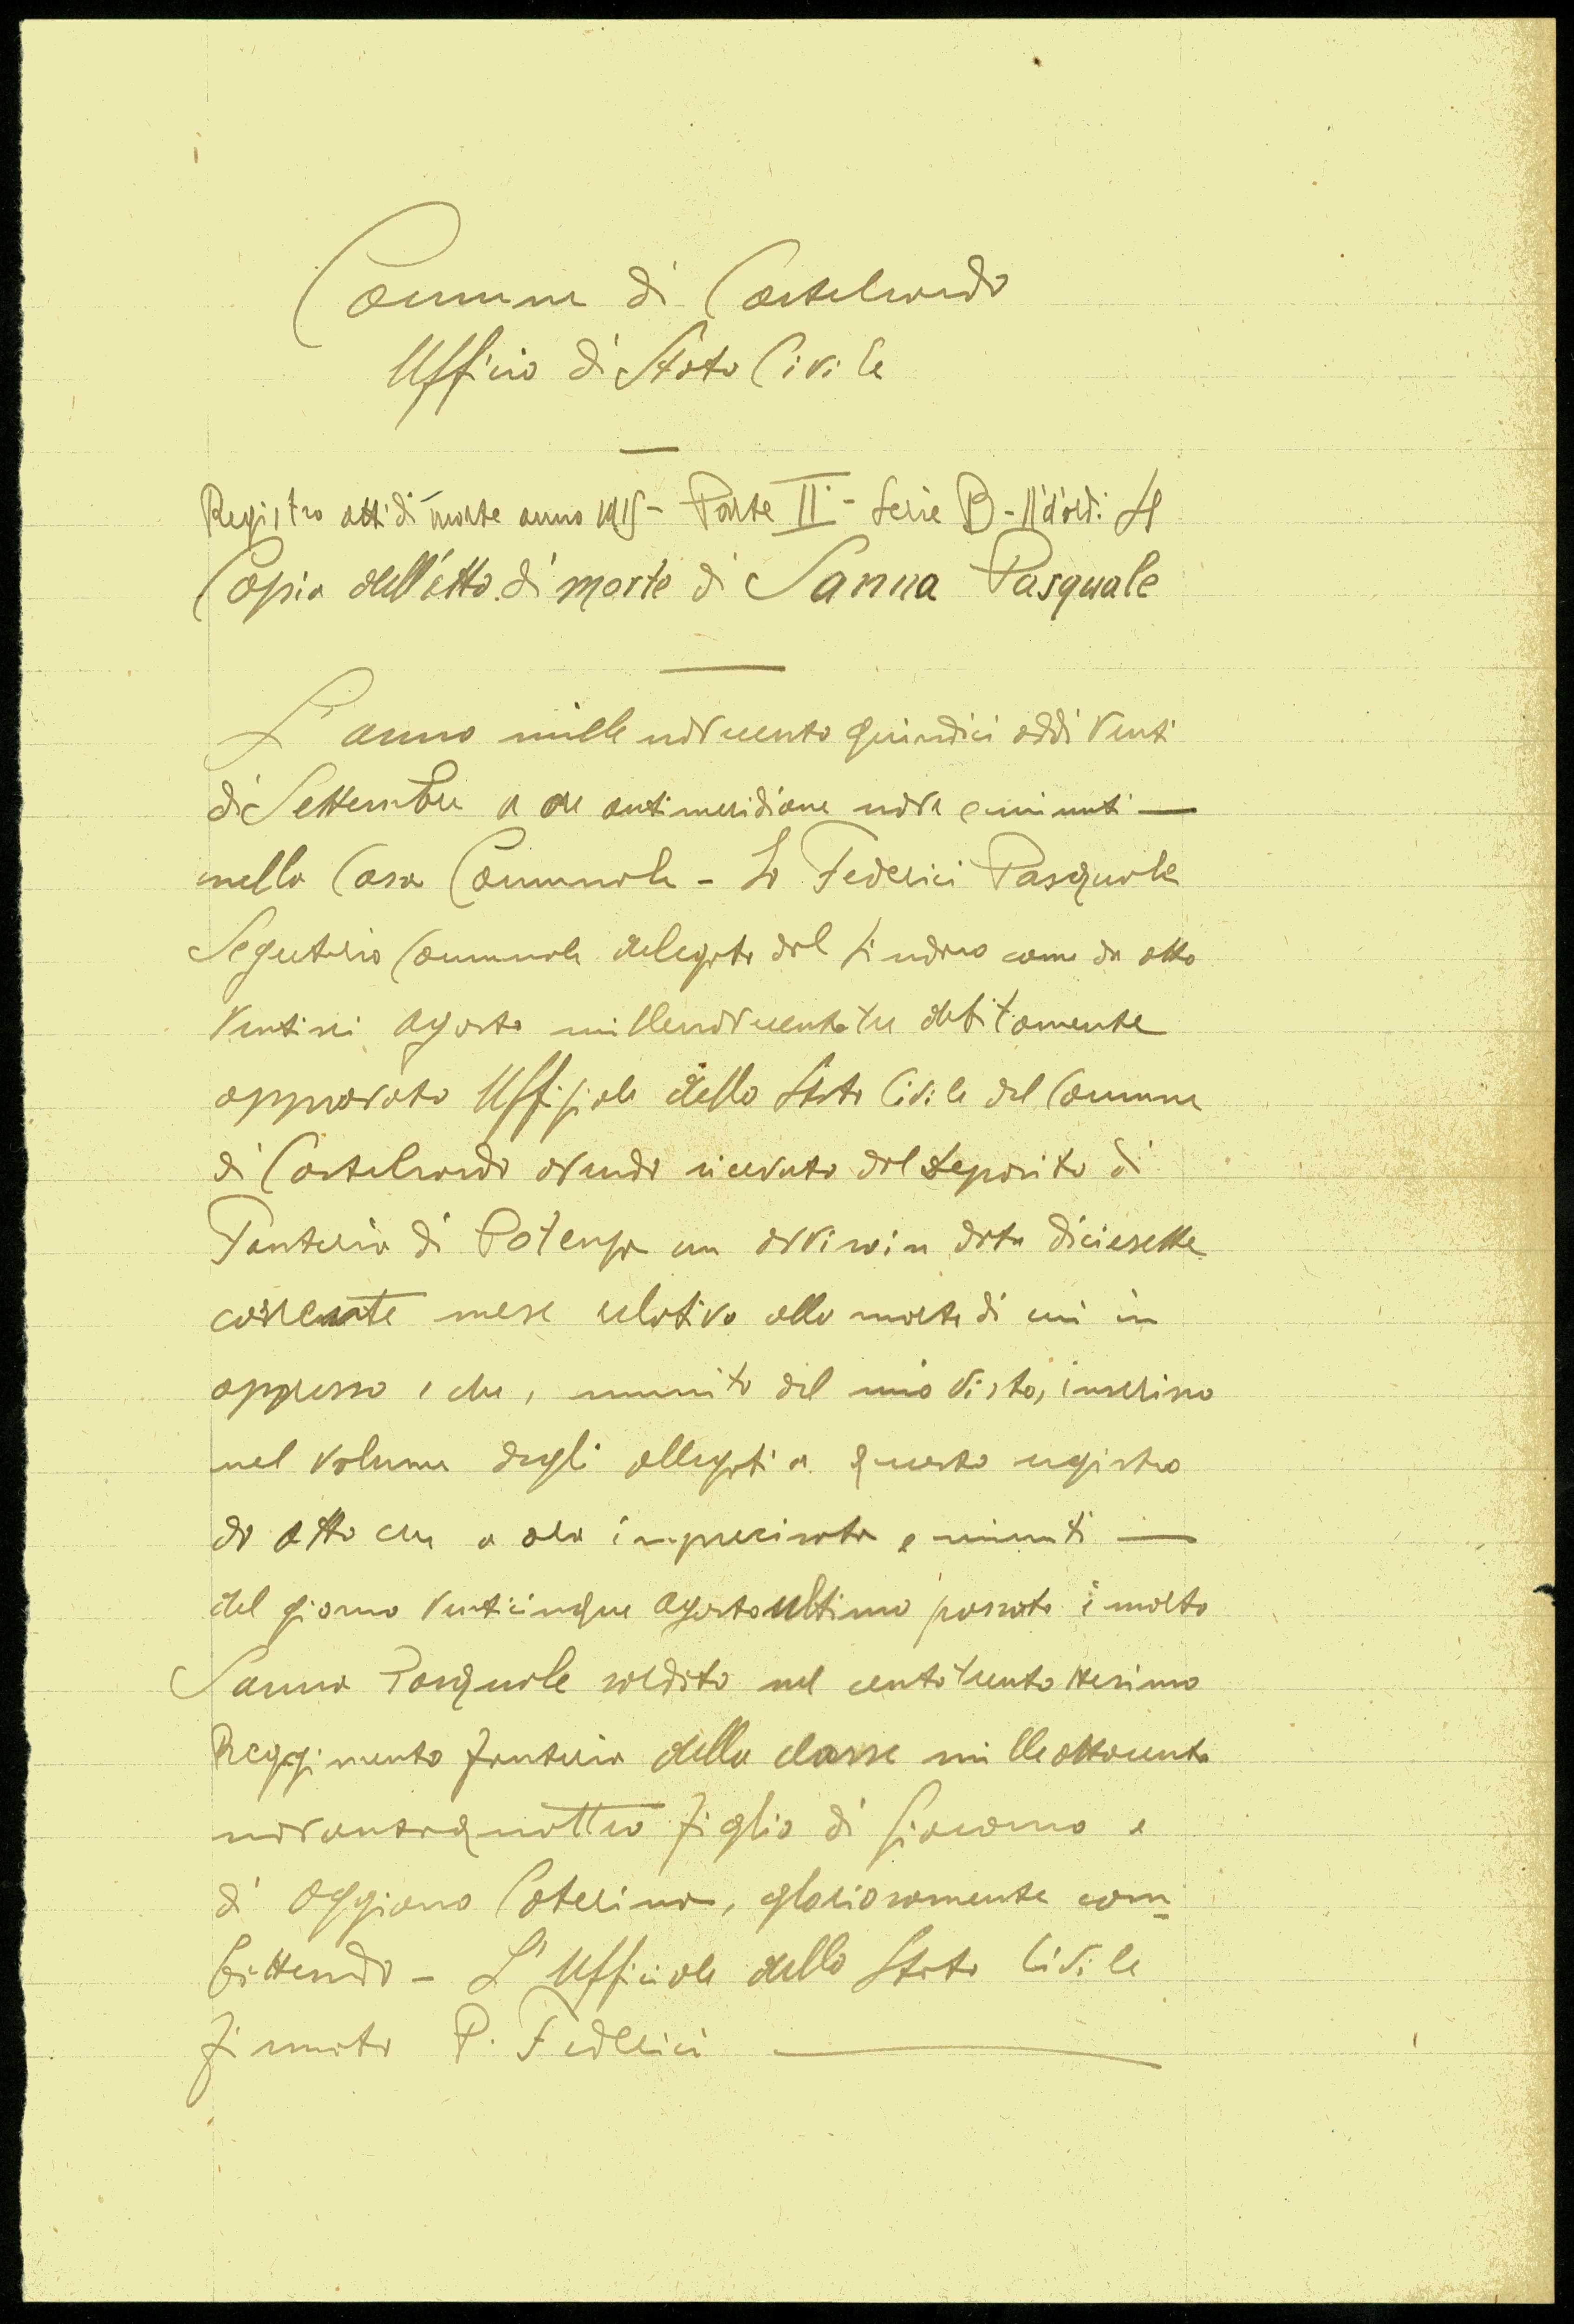 Comune di Castelsardo
Ufficio di Stato Civile
Registro atti di morte anno 1915 - Parte II - Serie B - N. d'ord:
Copia dell'atto di morte di Sanna Pasquale
L'anno mille novecento quindici addì venti
di Settembre a ore antimeridiane nove e minuti —
nella Casa Comunale - Io Federici Pasquale
Segretario Comunale delegato dal Sindaco come da atto
ventisei agosto millenovecentotre debitamente
approvato Uffiziale dello Stato Civile del Comune
di Castelsardo avendo ricevuto dal deposito di
Fanteria di Potenza un avviso in data diciasette
corrente mese relativo alla morte di cui in
appresso e che, munito del mio visto, inserisco
nel volume degli allegati a questo registro
do atto che a ora imprecisata e minuti —
del giorno venticinque agosto ultimo passato è morto
Sanna Pasquale soldato nel centotrentottesimo
Reggimento fanteria della classe milleottocento
novantaquattro figlio di Giacomo e
di Oggiano Caterina, gloriosamente com=
battendo - L'Ufficiale dello Stato Civile
firmato P. Federici —